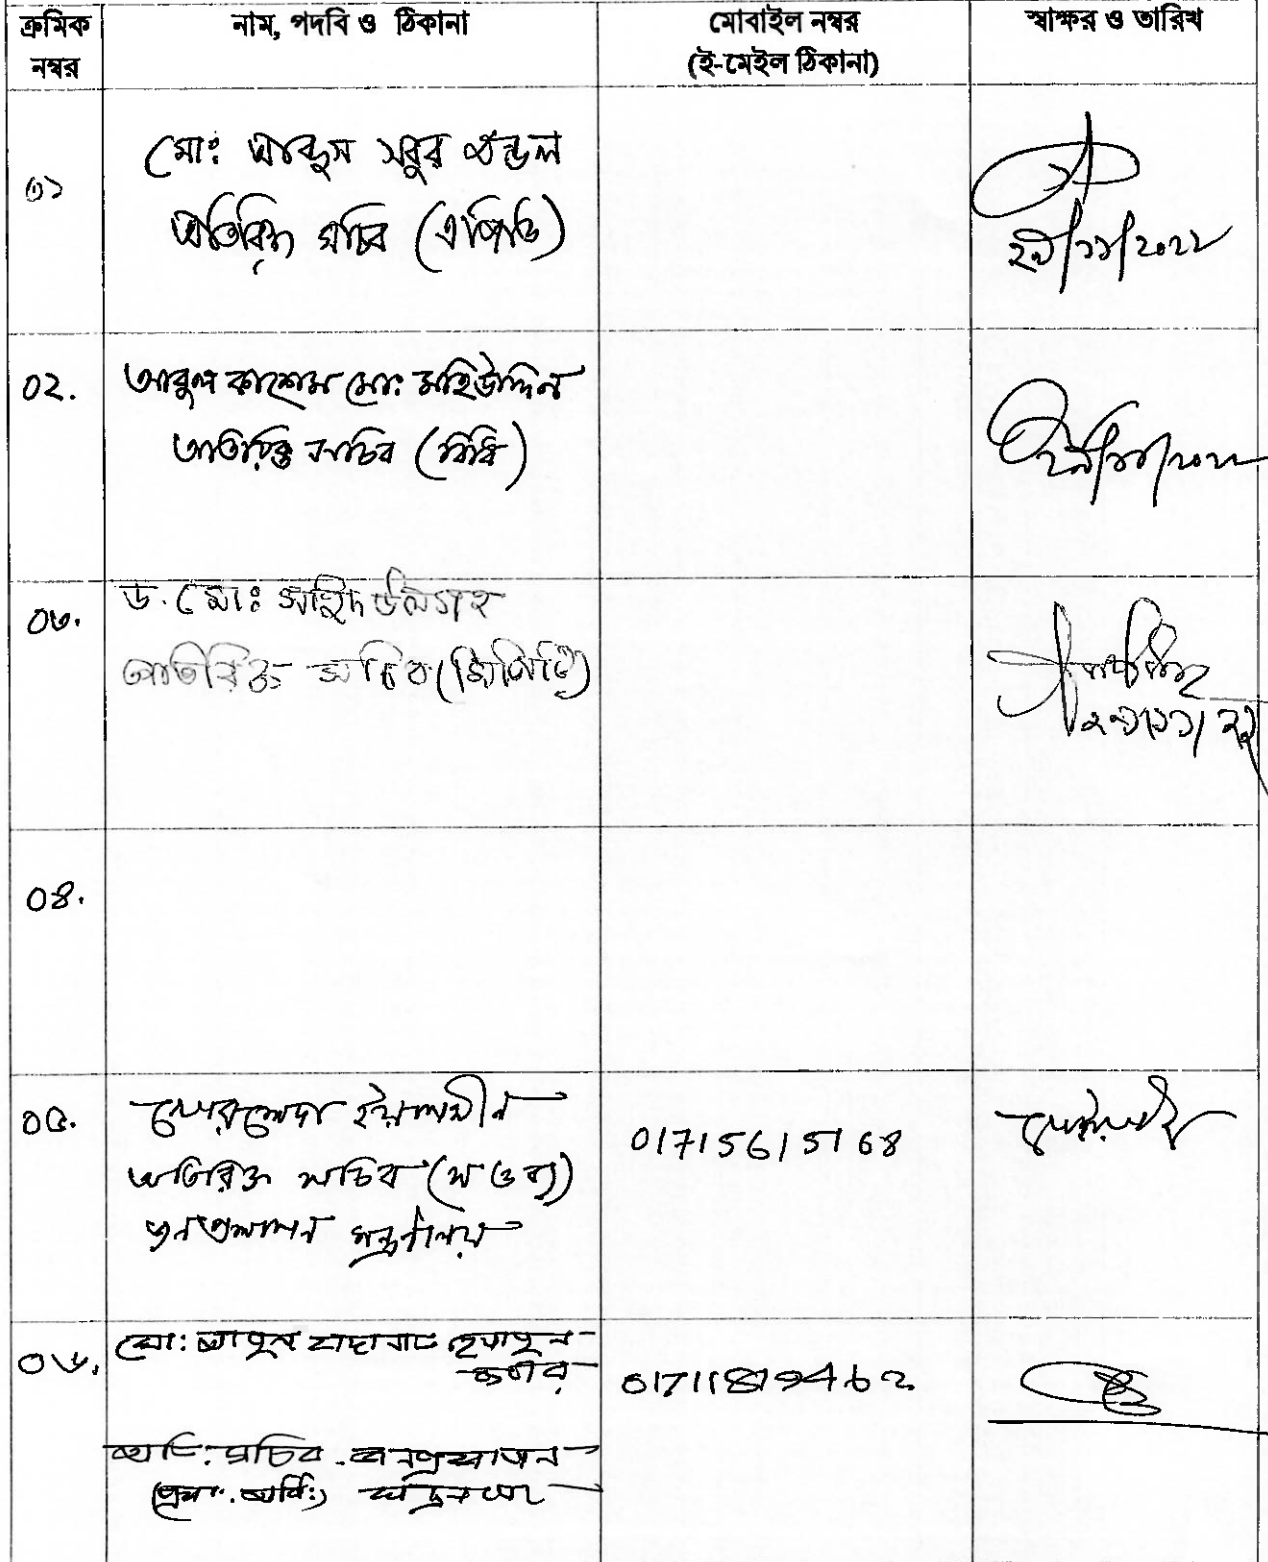 ক্রমিক নম্বর
নাম, পদবি ও ঠিকানা
মোবাইল নম্বর
(ই-মেইল ঠিকানা)
স্বাক্ষর ও তারিখ
০১
মোঃ আব্দুস সবুর মন্ডল
অতিরিক্ত সচিব (এপিডি)
২৯/১১/২০২২
০২.
আবুল কাশেম মোঃ মহিউদ্দিন
অতিরিক্ত সচিব (বিধি)
২৯/১১/২০২২
০৩.
ড. মোঃ সহিদউল্যাহ
অতিরিক্ত সচিব (সিপিটি)
২৯/১১/২২
০৪.
০৫.
ইয়াসমীন
অতিরিক্ত সচিব (স ও ব্য)
জনপ্রশাসন মন্ত্রণালয়
01715615168
০৬.
মোঃ হুমায়ুন কবীর
অতি: সচিব জনপ্রশাসন
মন্ত্রণালয়